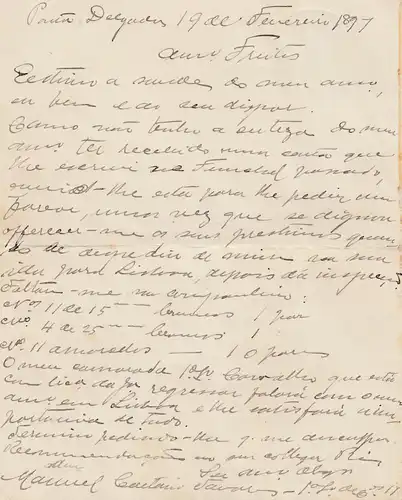 Ponta Delgada 19 de Fevereiro 1897
Amº Freitas
Estimo a saude do meu amo,
em bem e ao seu dispor.
Como não tenho a certeza do meu
amo ter recebido uma carta que
lhe escrevi no Funchal passado,
envio-lhe esta para lhe pedir um
favor, uma vez que se dignou
offerecer-me os seus prestimos quan-
do se despediu de mim na sua
ida para Lisboa, depois da inspecção
Faltam-me na
Nos 11 de 15 — brancos 1 par
Nos 4 de 25 — brancos 1
Nº 11 — 10 pares
O meu camarada 1º Carvalho que está
com licença regressar falará com o meu
amo em Lisboa e lhe satisfará a im-
portancia de tudo.
Termino pedindo-lhe q. me desculpe.
Recommendações ao seu collega
Seu amº Obgº
Manuel Caetano Tavares